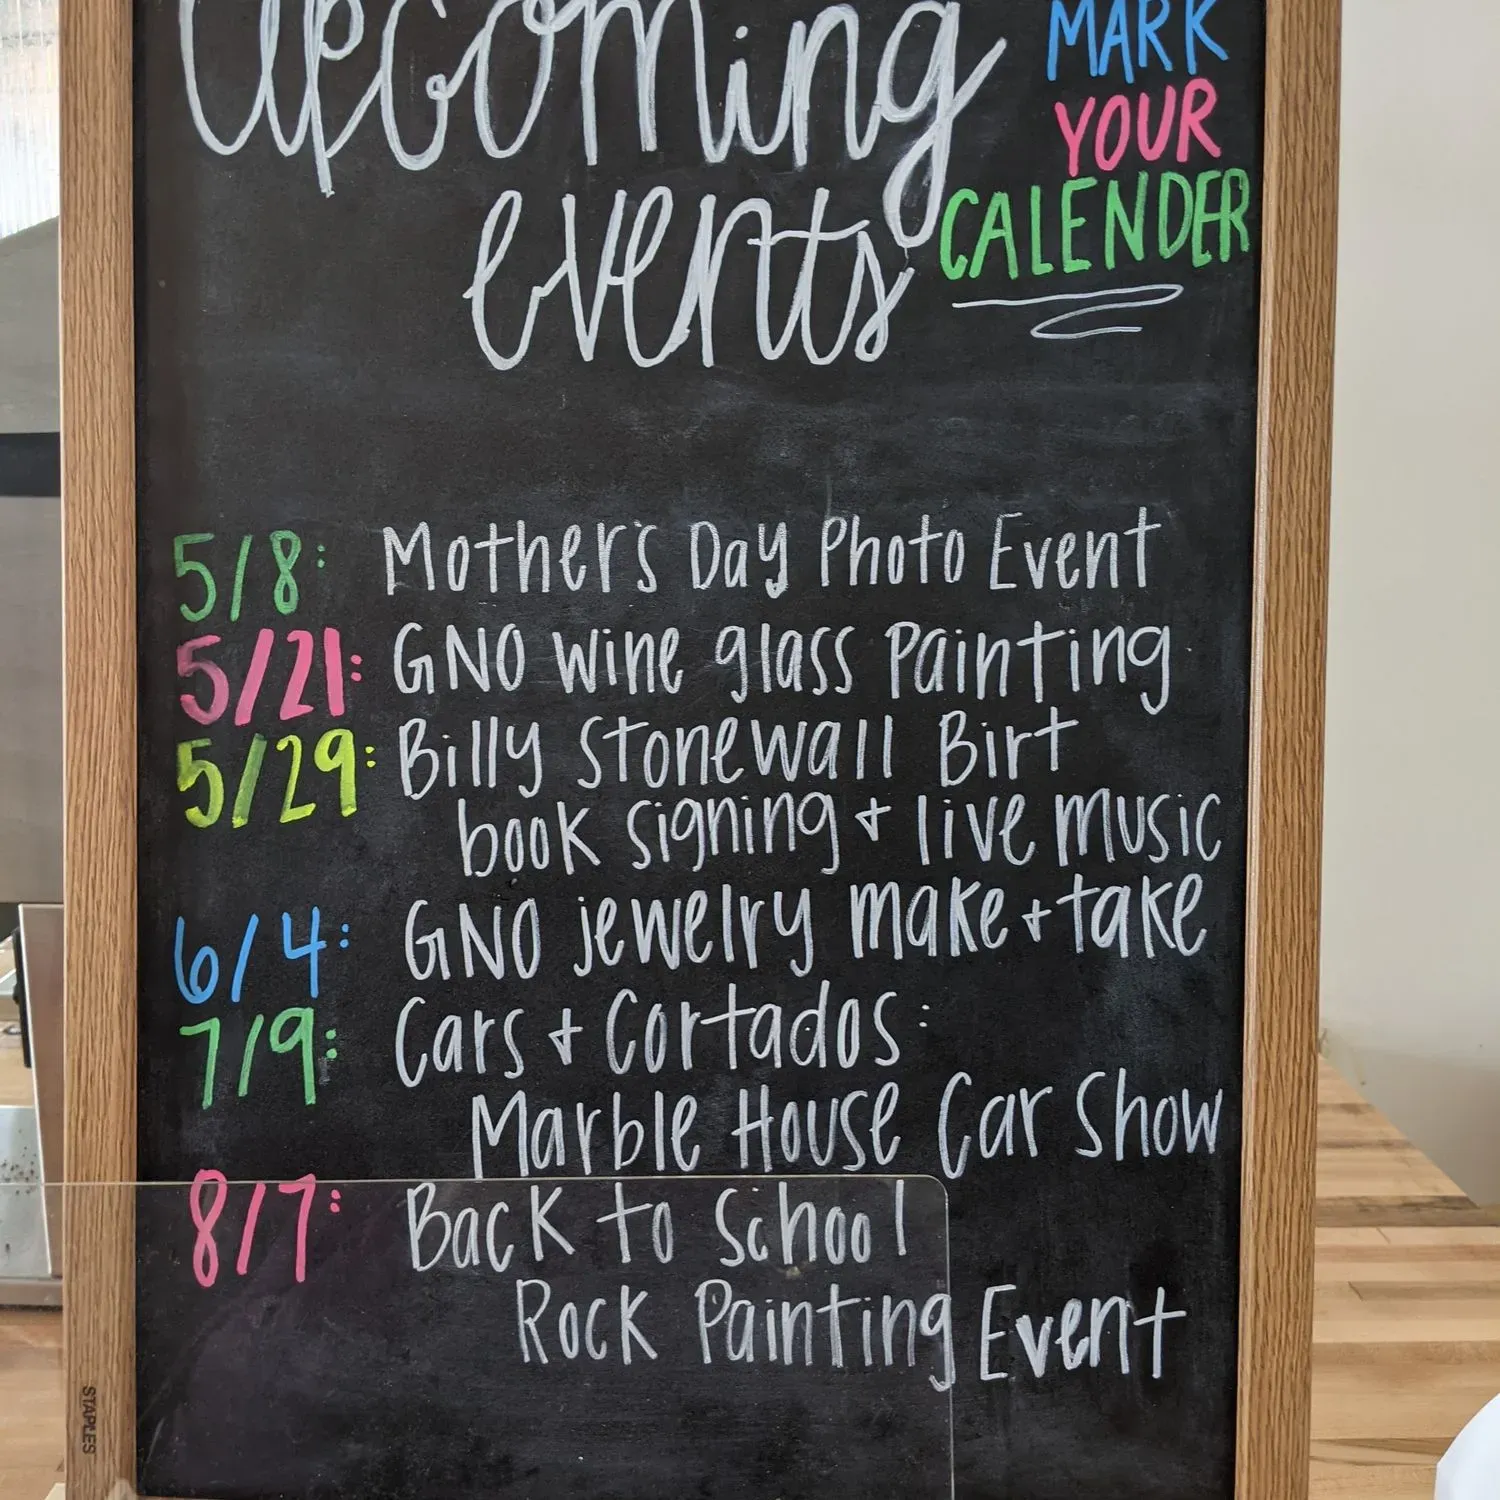 Upcoming
events
MARK
YOUR
CALENDER
5/8: Mother's Day Photo Event
5/21: GNO wine glass Painting
5/29: Billy Stonewall Birt
book signing + live music
6/4: GNO jewelry make + take
7/9: Cars + Cortados:
Marble House Car Show
8/7: Back to School
Rock Painting Event
STAPLES